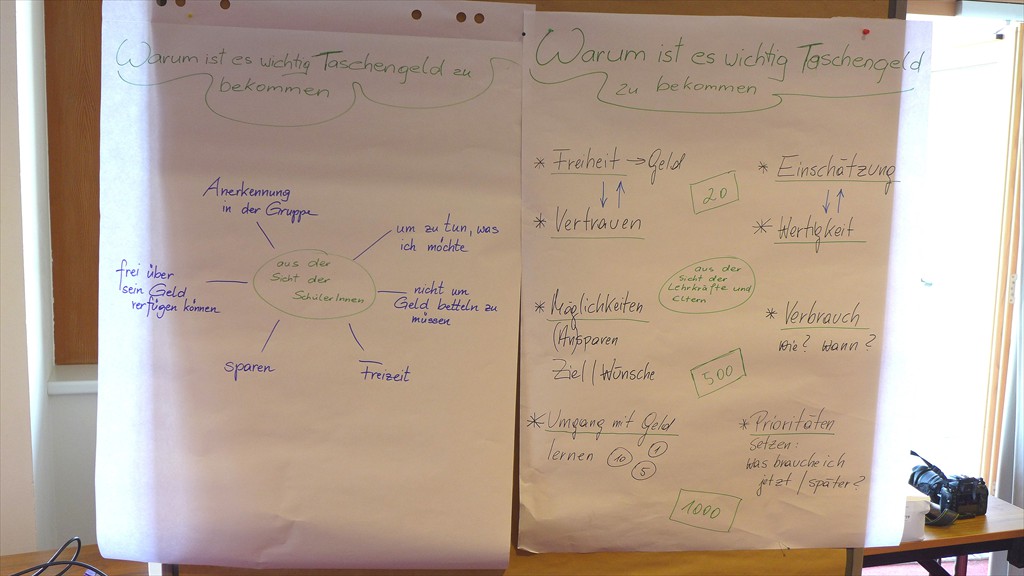 Warum ist es wichtig Taschengeld zu
bekommen
Anerkennung
in der Gruppe
um zu tun, was
ich möchte
aus der
Sicht der
SchülerInnen
frei über
sein Geld
verfügen können
nicht um
Geld betteln zu
müssen
sparen
Freizeit
Warum ist es wichtig Taschengeld
zu bekommen
* Freiheit → Geld
* Vertrauen
20
* Einschätzung
* Wertigkeit
aus der
Sicht der
Lehrkräfte und
Eltern
* Möglichkeiten
(An)sparen
Ziel / Wünsche
* Verbrauch
wie? wann?
500
* Umgang mit Geld
lernen 10 1
5
* Prioritäten
setzen:
was brauche ich
jetzt / später?
1000